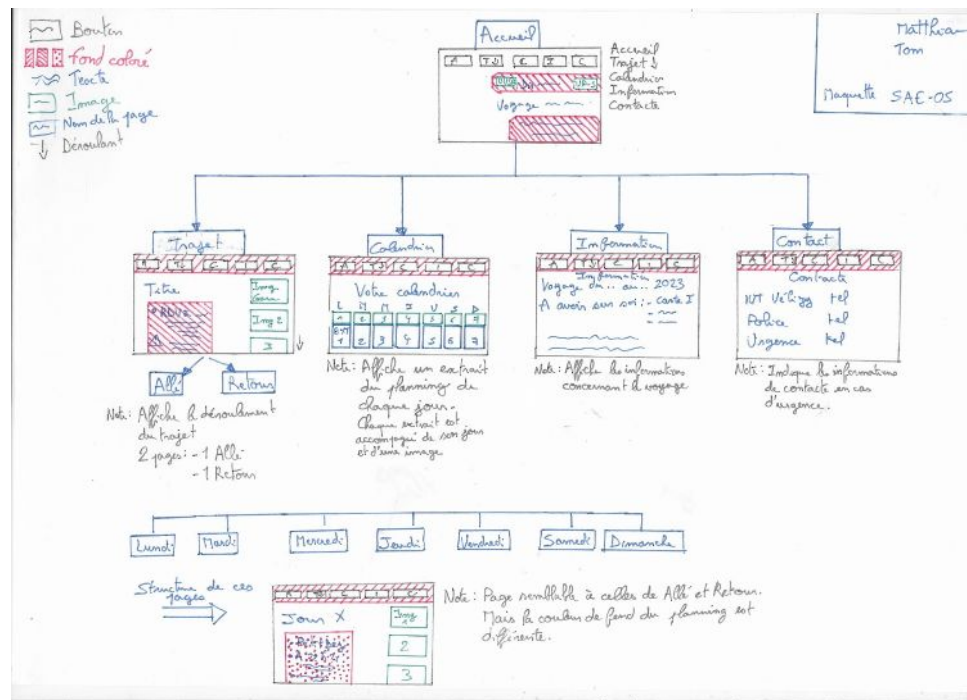 Bouton
fond coloré
Texte
Image
Nom de la page
Déroulant
Matthieu
Tom
Maquette SAE-05
Accueil
A TS C I C
Accueil
Trajet ↓
Calendrier
Information
Contacte
Voyage
Trajet
A TS C C
Titre
RDV
Img 2
3
Allé
Retour
Note : Affiche le déroulement
du trajet
2 pages : - 1 Allé
- 1 Retour
Calendrier
A TS C I C
Votre calendrier
L M M J V S D
1 2 3 4 5 6 7
1 2 3 4 5 6 7
Note : Affiche un extrait
du planning de
chaque jour.
Chaque extrait est
accompagné de son jour
et d'une image
Information
A TS C I C
Information
Voyage du .. au ... 2023
A avoir sur soi : - carte I
Note : Affiche les informations
concernant le voyage
Contact
A TS C I C
Contacte
IUT Vélizy tel
Police tel
Urgence tel
Note : Indique les informations
de contacte en cas
d'urgence.
Lundi
Mardi
Mercredi
Jeudi
Vendredi
Samedi
Dimanche
Structure de ces
pages
Jour X
Img
1
2
3
Note : Page semblable à celles de Allé et Retour.
Mais la couleur de fond du planning est
différente.